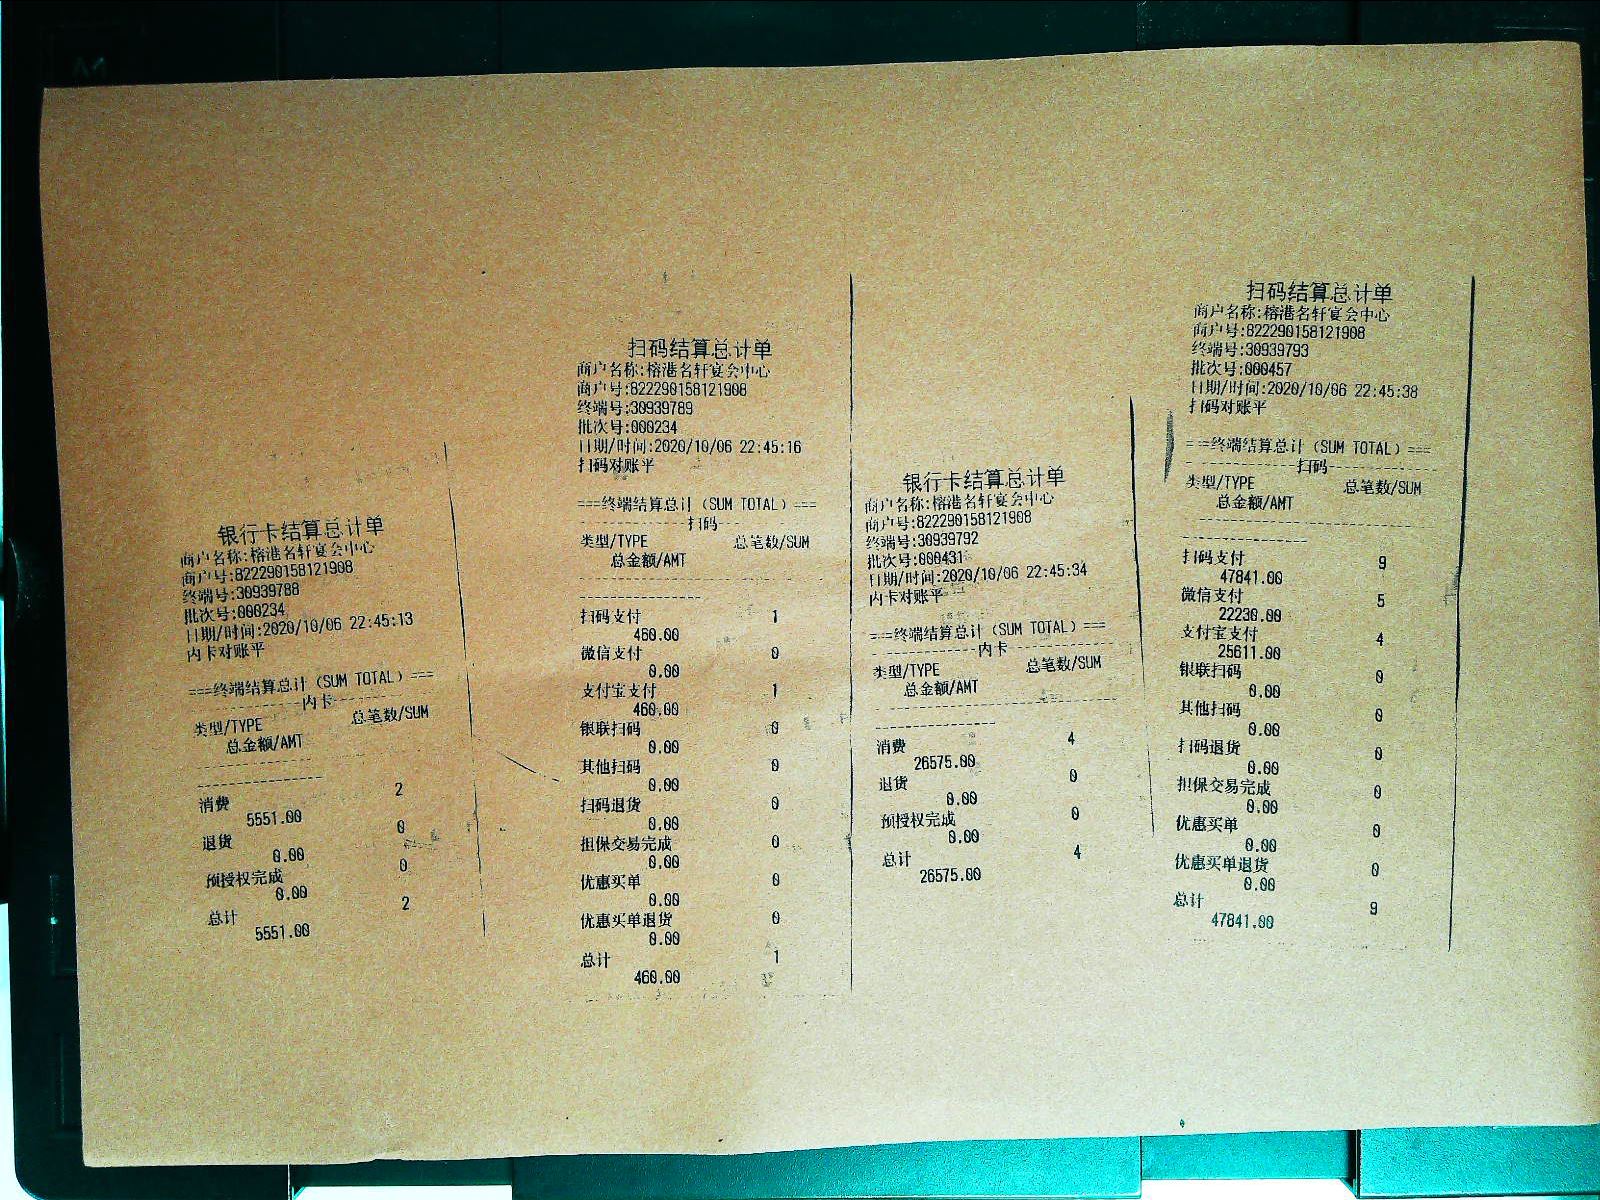 银行卡结算总计单
商户名称:榕港名轩宴会中心
商户号:822290158121908
终端号:30939788
批次号:000234
日期/时间:2020/10/06 22:45:13
内卡对账平
===终端结算总计(SUM TOTAL)===
内卡
类型/TYPE 总笔数/SUM
总金额/AMT
消费 2
5551.00
退货 0
0.00
预授权完成 0
0.00
总计 2
5551.00
扫码结算总计单
商户名称:榕港名轩宴会中心
商户号:822290158121908
终端号:30939789
批次号:000234
日期/时间:2020/10/06 22:45:16
扫码对账平
===终端结算总计(SUM TOTAL)===
扫码
类型/TYPE 总笔数/SUM
总金额/AMT
扫码支付 1
460.00
微信支付 0
0.00
支付宝支付 1
460.00
银联扫码 0
0.00
其他扫码 0
0.00
扫码退货 0
0.00
担保交易完成 0
0.00
优惠买单 0
0.00
优惠买单退货 0
0.00
总计 1
460.00
银行卡结算总计单
商户名称:榕港名轩宴会中心
商户号:822290158121908
终端号:30939792
批次号:000431
日期/时间:2020/10/06 22:45:34
内卡对账平
===终端结算总计(SUM TOTAL)===
内卡
类型/TYPE 总笔数/SUM
总金额/AMT
消费 4
26575.00
退货 0
0.00
预授权完成 0
0.00
总计 4
26575.00
扫码结算总计单
商户名称:榕港名轩宴会中心
商户号:822290158121908
终端号:30939793
批次号:000457
日期/时间:2020/10/06 22:45:38
扫码对账平
===终端结算总计(SUM TOTAL)===
扫码
类型/TYPE 总笔数/SUM
总金额/AMT
扫码支付 9
47841.00
微信支付 5
22230.00
支付宝支付 4
25611.00
银联扫码 0
0.00
其他扫码 0
0.00
扫码退货 0
0.00
担保交易完成 0
0.00
优惠买单 0
0.00
优惠买单退货 0
0.00
总计 9
47841.00